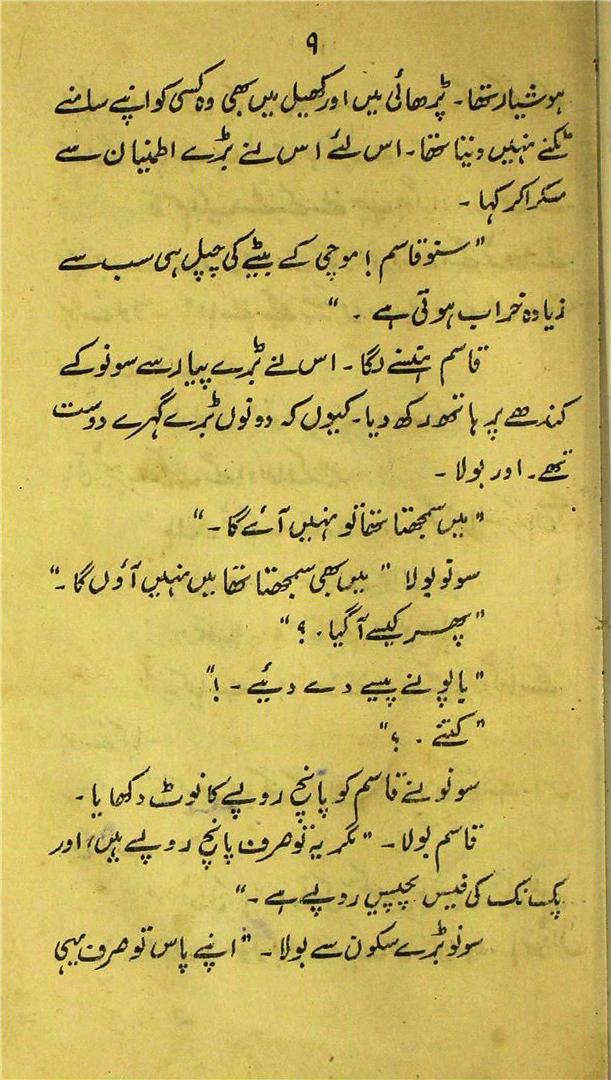 ۹
ہوشیار تھا۔ پڑھائی میں اور کھیل میں بھی وہ کسی کو اپنے سامنے
ٹکنے نہیں دیتا تھا۔ اس لئے اس نے بڑے اطمینان سے
مسکرا کر کہا۔
"سنو قاسم! موچی کے بیٹے کی چپل ہی سب سے
زیادہ خراب ہوتی ہے۔"
قاسم ہنسنے لگا۔ اس نے بڑے پیار سے سونو کے
کندھے پر ہاتھ رکھ دیا۔ کیوں کہ دونوں بڑے گہرے دوست
تھے۔ اور بولا۔
"میں سمجھتا تھا تو نہیں آئے گا۔"
سونو بولا "میں بھی سمجھتا تھا میں نہیں آؤں گا۔"
"پھر کیسے آ گیا۔؟"
"باپو نے پیسے دے دئیے۔!"
"کتنے۔؟"
سونو نے قاسم کو پانچ روپے کا نوٹ دکھایا۔
قاسم بولا۔ "مگر یہ تو صرف پانچ روپے ہیں، اور
پک نک کی فیس پچیس روپے ہے۔"
سونو بڑے سکون سے بولا۔ "اپنے پاس تو صرف یہی